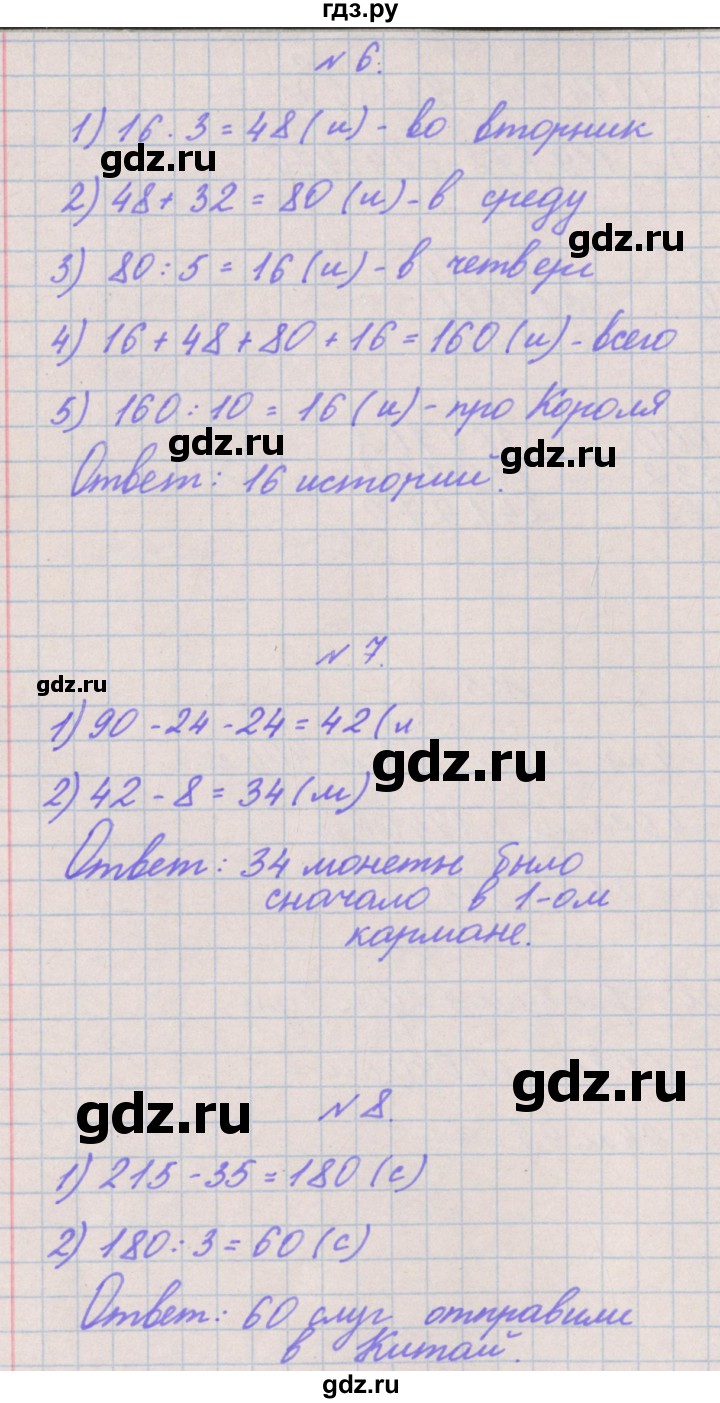 гдз.ру
№ 6.
1) 16 · 3 = 48 (и) - во вторник
gdz.ru
2) 48 + 32 = 80 (и) - в среду
gdz.ru
3) 80 : 5 = 16 (и) - в четверг
4) 16 + 48 + 80 + 16 = 160 (и) - всего
5) 160 : 10 = 16 (и) - про Короля
gdz.ru
gdz.ru
Ответ: 16 историй.
№ 7.
gdz.ru
1) 90 - 24 - 24 = 42 (
gdz.ru
2) 42 - 8 = 34 (м)
Ответ: 34 монеты было
сначало в 1-ом
кармане.
gdz.ru
gdz.ru
№ 8.
1) 215 - 35 = 180 (с)
2) 180 : 3 = 60 (с)
Ответ: 60 слуг отправили
в Китай.
gdz.ru